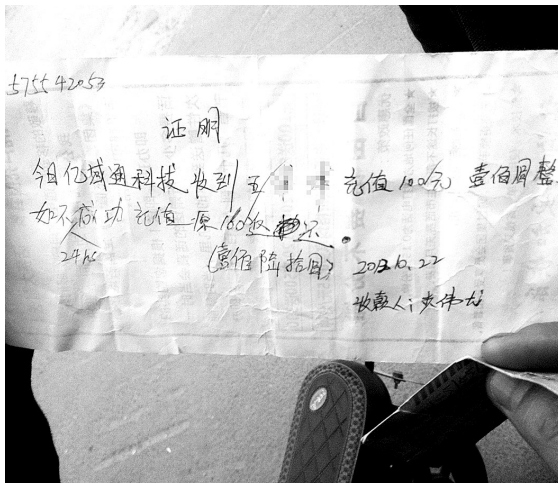 575542053
证明
今日亿域通科技收到五 充值100元 壹佰圆整
如不成功充值源160 还.
24hs
(壹佰陆拾圆) 2013.10.22
收款人: